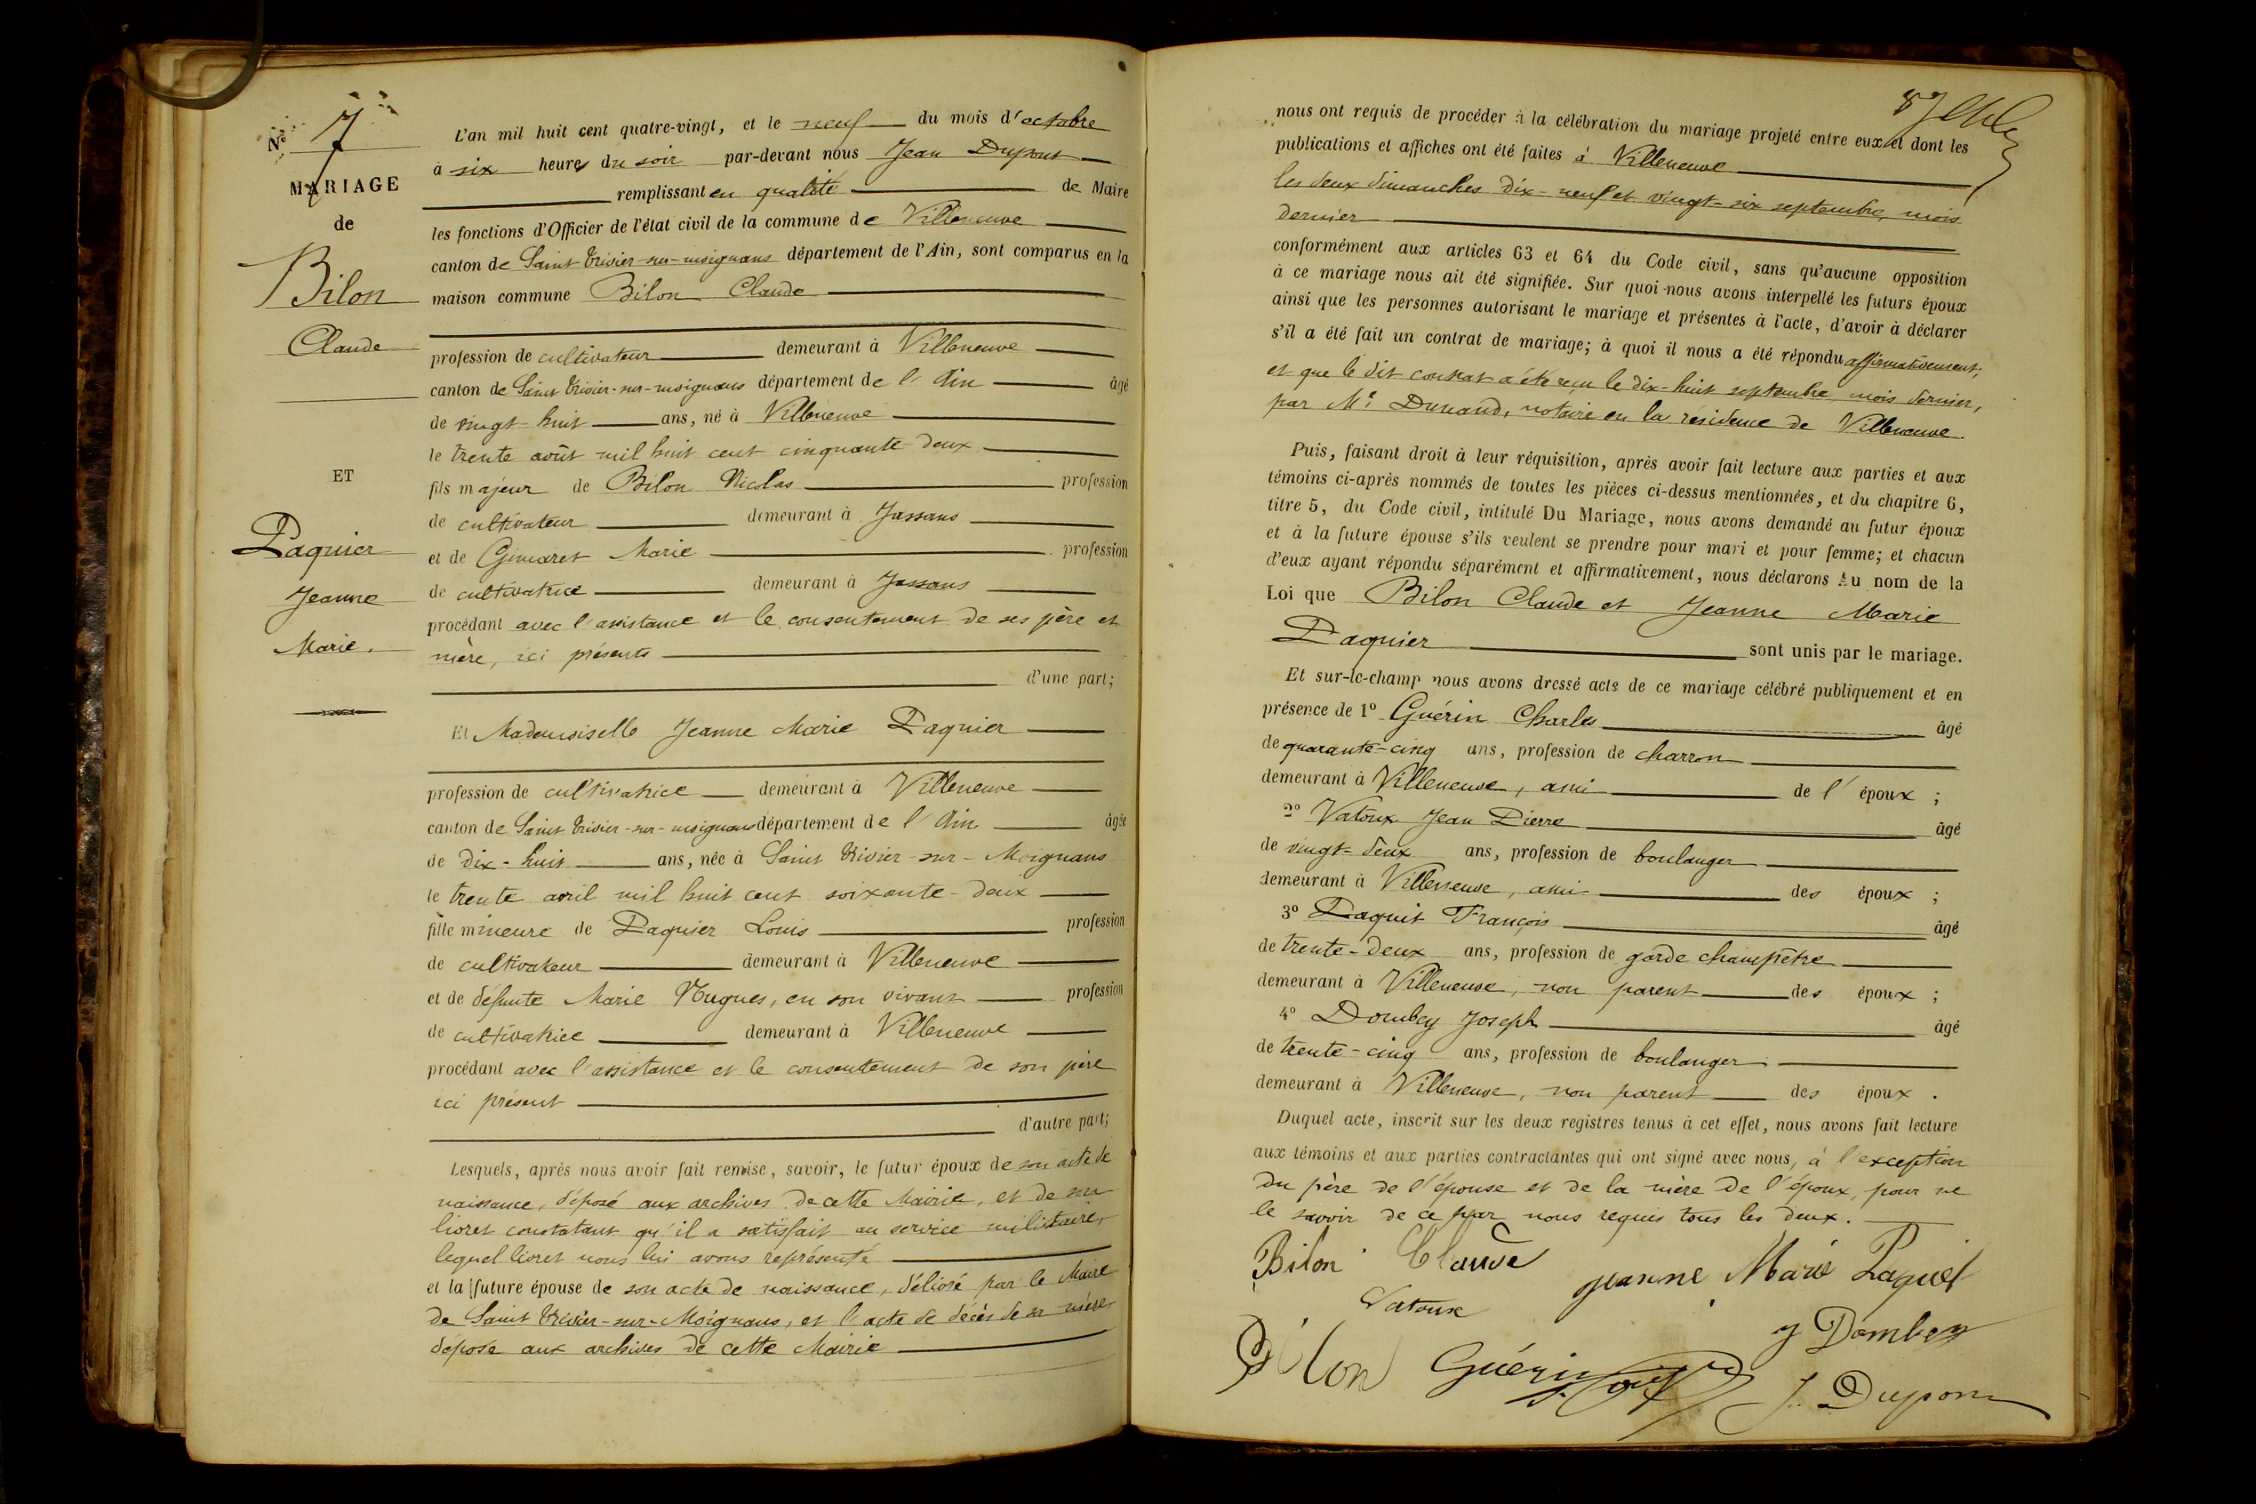 Nº 7
MARIAGE
de
Bilon
Claude
ET
Paquier
Jeanne
Marie.
L'an mil huit cent quatre-vingt, et le neuf du mois d'octobre
à six heures du soir par-devant nous Jean Dupont
remplissant en qualité de Maire
les fonctions d'Officier de l'état civil de la commune de Villeneuve
canton de Saint Trivier-sur-moignans département de l'Ain, sont comparus en la
maison commune Bilon Claude
profession de cultivateur demeurant à Villeneuve
canton de Saint Trivier-sur-moignans département de l'Ain âgé
de vingt-huit ans, né à Villeneuve
le trente août mil huit cent cinquante-deux
fils majeur de Bilon Nicolas profession
de cultivateur demeurant à Jassans
et de Gimaret Marie profession
de cultivatrice demeurant à Jassans
procédant avec l'assistance et le consentement de ses père et
mère, ici présents
d'une part;
Et Mademoiselle Jeanne Marie Paquier
profession de cultivatrice demeurant à Villeneuve
canton de Saint Trivier-sur-moignans département de l'Ain âgée
de dix-huit ans, née à Saint Trivier-sur-Moignans
le trente avril mil huit cent soixante-deux
fille mineure de Paquier Louis profession
de cultivateur demeurant à Villeneuve
et de défunte Marie Nugues, en son vivant profession
de cultivatrice demeurant à Villeneuve
procédant avec l'assistance et le consentement de son père
ici présent
d'autre part;
Lesquels, après nous avoir fait remise, savoir, le futur époux de son acte de
naissance, déposé aux archives de cette Mairie, et de son
livret constatant qu'il a satisfait au service militaire,
lequel livret nous lui avons représenté
et la future épouse de son acte de naissance, délivré par le Maire
de Saint Trivier-sur-Moignans, et l'acte de décès de sa mère
déposé aux archives de cette Mairie
87
nous ont requis de procéder à la célébration du mariage projeté entre eux et dont les
publications et affiches ont été faites à Villeneuve
les deux dimanches dix-neuf et vingt-six septembre, mois
dernier
conformément aux articles 63 et 64 du Code civil, sans qu'aucune opposition
à ce mariage nous ait été signifiée. Sur quoi nous avons interpellé les futurs époux
ainsi que les personnes autorisant le mariage et présentes à l'acte, d'avoir à déclarer
s'il a été fait un contrat de mariage; à quoi il nous a été répondu affirmativement;
et que le dit contrat a été reçu le dix-huit septembre, mois dernier,
par Me Dunand, notaire en la résidence de Villeneuve.
Puis, faisant droit à leur réquisition, après avoir fait lecture aux parties et aux
témoins ci-après nommés de toutes les pièces ci-dessus mentionnées, et du chapitre 6,
titre 5, du Code civil, intitulé Du Mariage, nous avons demandé au futur époux
et à la future épouse s'ils veulent se prendre pour mari et pour femme; et chacun
d'eux ayant répondu séparément et affirmativement, nous déclarons au nom de la
Loi que Bilon Claude et Jeanne Marie
Paquier sont unis par le mariage.
Et sur-le-champ nous avons dressé acte de ce mariage célébré publiquement et en
présence de 1º Guérin Charles âgé
de quarante-cinq ans, profession de charron
demeurant à Villeneuve, ami de l'époux ;
2º Vatoux Jean Pierre âgé
de vingt-deux ans, profession de boulanger
demeurant à Villeneuve, ami des époux ;
3º Paquit François âgé
de trente-deux ans, profession de garde champêtre
demeurant à Villeneuve, non parent des époux ;
4º Dombey Joseph âgé
de trente-cinq ans, profession de boulanger
demeurant à Villeneuve, non parent des époux .
Duquel acte, inscrit sur les deux registres tenus à cet effet, nous avons fait lecture
aux témoins et aux parties contractantes qui ont signé avec nous, à l'exception
du père de l'épouse et de la mère de l'époux, pour ne
le savoir de ce par nous requis tous les deux.
Bilon Claude
jeanne Marie Paquet
Vatoux
J Dombey
Bilon
Guérin
J. Dupont